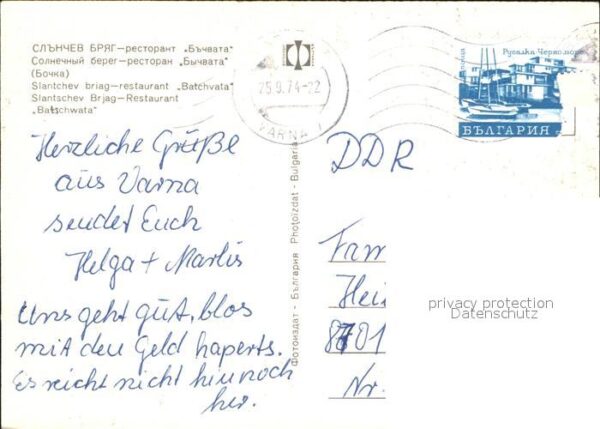 СЛЪНЧЕВ БРЯГ—ресторант „Бъчвата“
Солнечный берег—ресторан „Бычвата“
(Бочка)
Slantchev briag—restaurant „Batchvata“
Slantschev Brjag—Restaurant
„Batschwata“
25.9.74-22
VARNA 1
Русалка Черноморе
БЪЛГАРИЯ
Herzliche Grüße
aus Varna
sendet Euch
Helga + Marlis
Uns geht gut, blos
mit den Geld haperts.
Es reicht nicht hin noch
her.
Фотоиздат - България Photoizdat - Bulgaria
DDR
Fam
Hei
8701
Nr.
privacy protection
Datenschutz